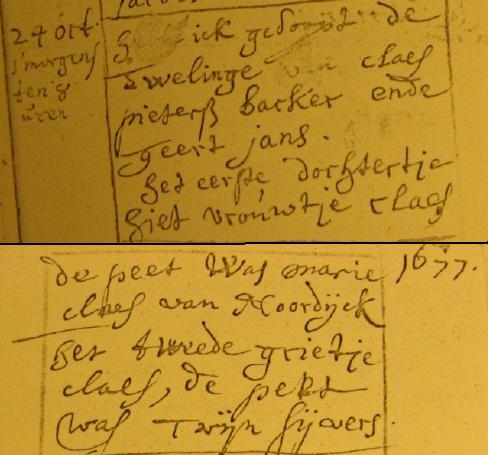 24 oct.
s'morgens
ten 8
uren
ick gedoopt de
twelinge van claes
pieterß backer ende
geert jans.
het eerste dochtertje
hiet vrouwtje claes
de peet was marie 1677.
claes van Noordijck
het twede grietje
claes, de peet
was Trijn sijvers.